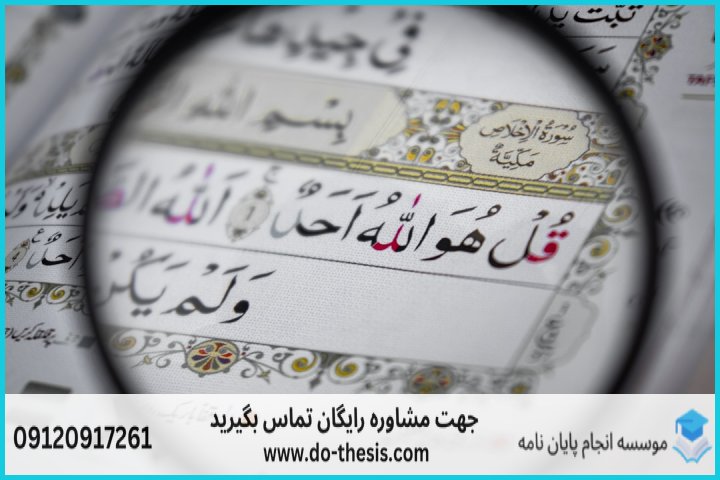 تَبَّتْ
فِي جِيدِهَا
بِسْمِ اللهِ
سُورَةُ الْاِخْلَاصِ
مَكِّيَّةٌ
قُلْ هُوَ اللهُ اَحَدٌ ۱ اَللهُ
وَلَمْ يَكُنْ
جهت مشاوره رایگان تماس بگیرید
www.do-thesis.com
09120917261
موسسه انجام پایان نامه